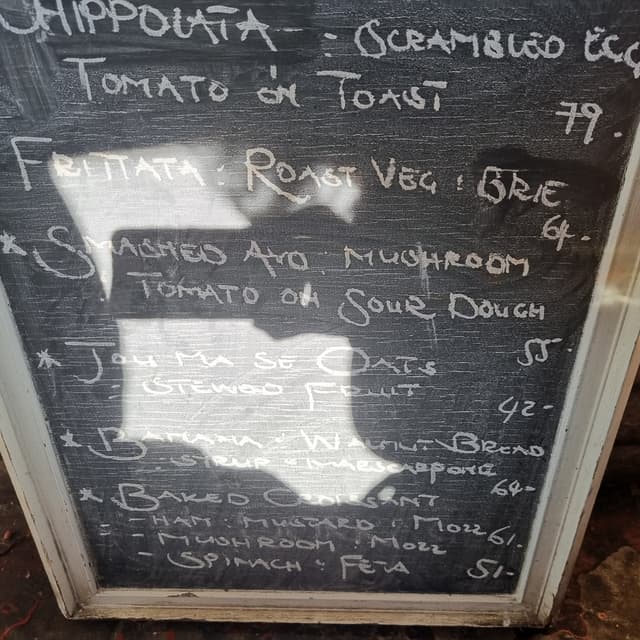 CHIPPOLATA : SCRAMBLED EGG
TOMATO ON TOAST
79.
FRITTATA : ROAST VEG : BRIE
64-
* SMASHED AVO : MUSHROOM
TOMATO ON SOUR DOUGH
55-
* JOU MA SE OATS
= STEWED FRUIT
42-
* BANANA : WALNUT BREAD
: SYRUP : MARSCAPPONE
64-
* BAKED CROISSANT
- HAM : MUSTARD : MOZZ 61.
- MUSHROOM : MOZZ
- SPINACH : FETA 51-